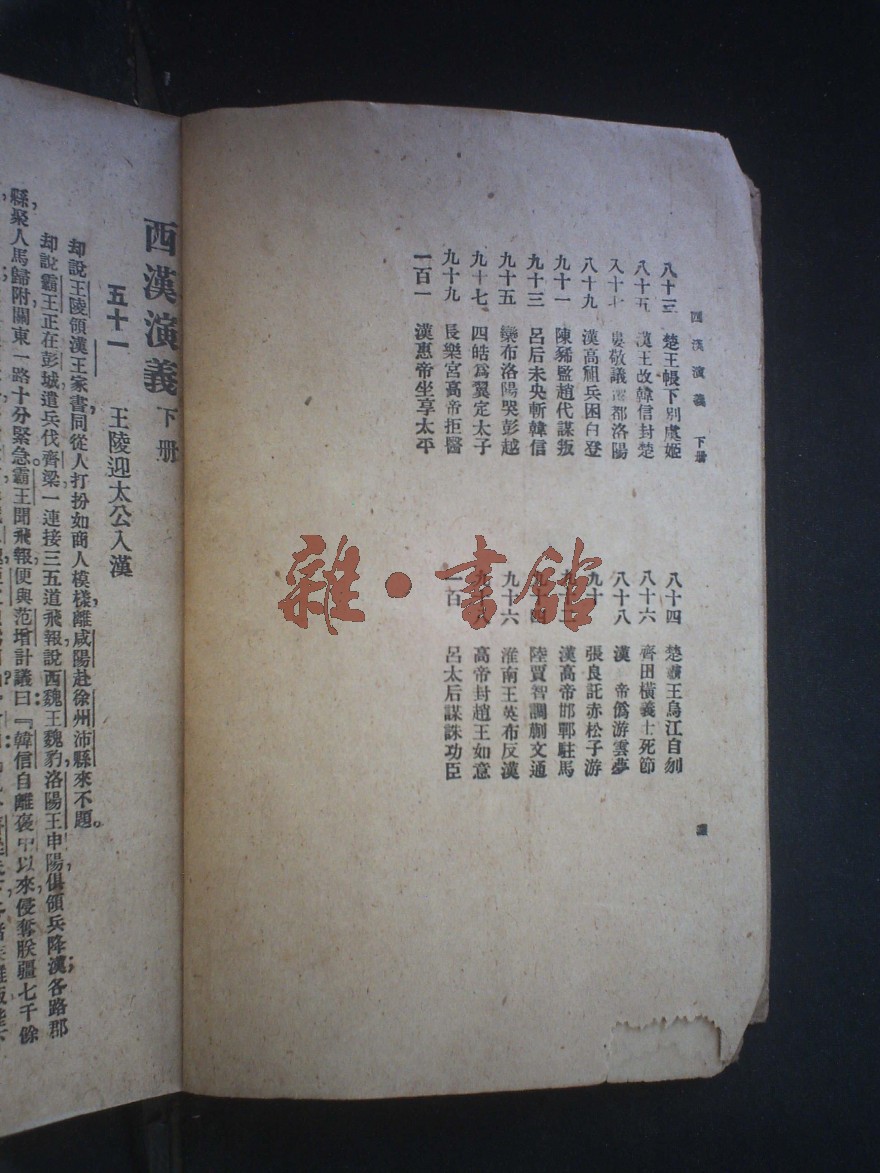 西漢演義 下册
八十三 楚王帳下別虞姬
八十四 楚霸王烏江自刎
八十五 漢王改韓信封楚
八十六 齊田橫義士死節
八十七 婁敬議遷都洛陽
八十八 漢 帝僞游雲夢
八十九 漢高祖兵困白登
九十 張良託赤松子游
九十一 陳豨監趙代謀叛
九十二 漢高帝邯鄲駐馬
九十三 呂后未央斬韓信
九十四 陸賈智調蒯文通
九十五 欒布洛陽哭彭越
九十六 淮南王英布反漢
九十七 四皓爲翼定太子
九十八 高帝封趙王如意
九十九 長樂宮高帝拒醫
一百 呂太后謀誅功臣
一百一 漢惠帝坐享太平
雜·書館
西漢演義 下册
五十一 王陵迎太公入漢
却說王陵領漢王家書,同從人打扮如商人模樣,離咸陽赴徐州沛縣來不題。
却說霸王正在彭城遣兵伐齊梁,一連接三五道飛報,說西魏王魏豹洛陽王申陽,俱領兵降漢;各路郡
縣,聚人馬歸附,關東一路十分緊急。霸王聞飛報,便與范增計議曰:『韓信自離褒中以來,侵奪朕疆七千餘